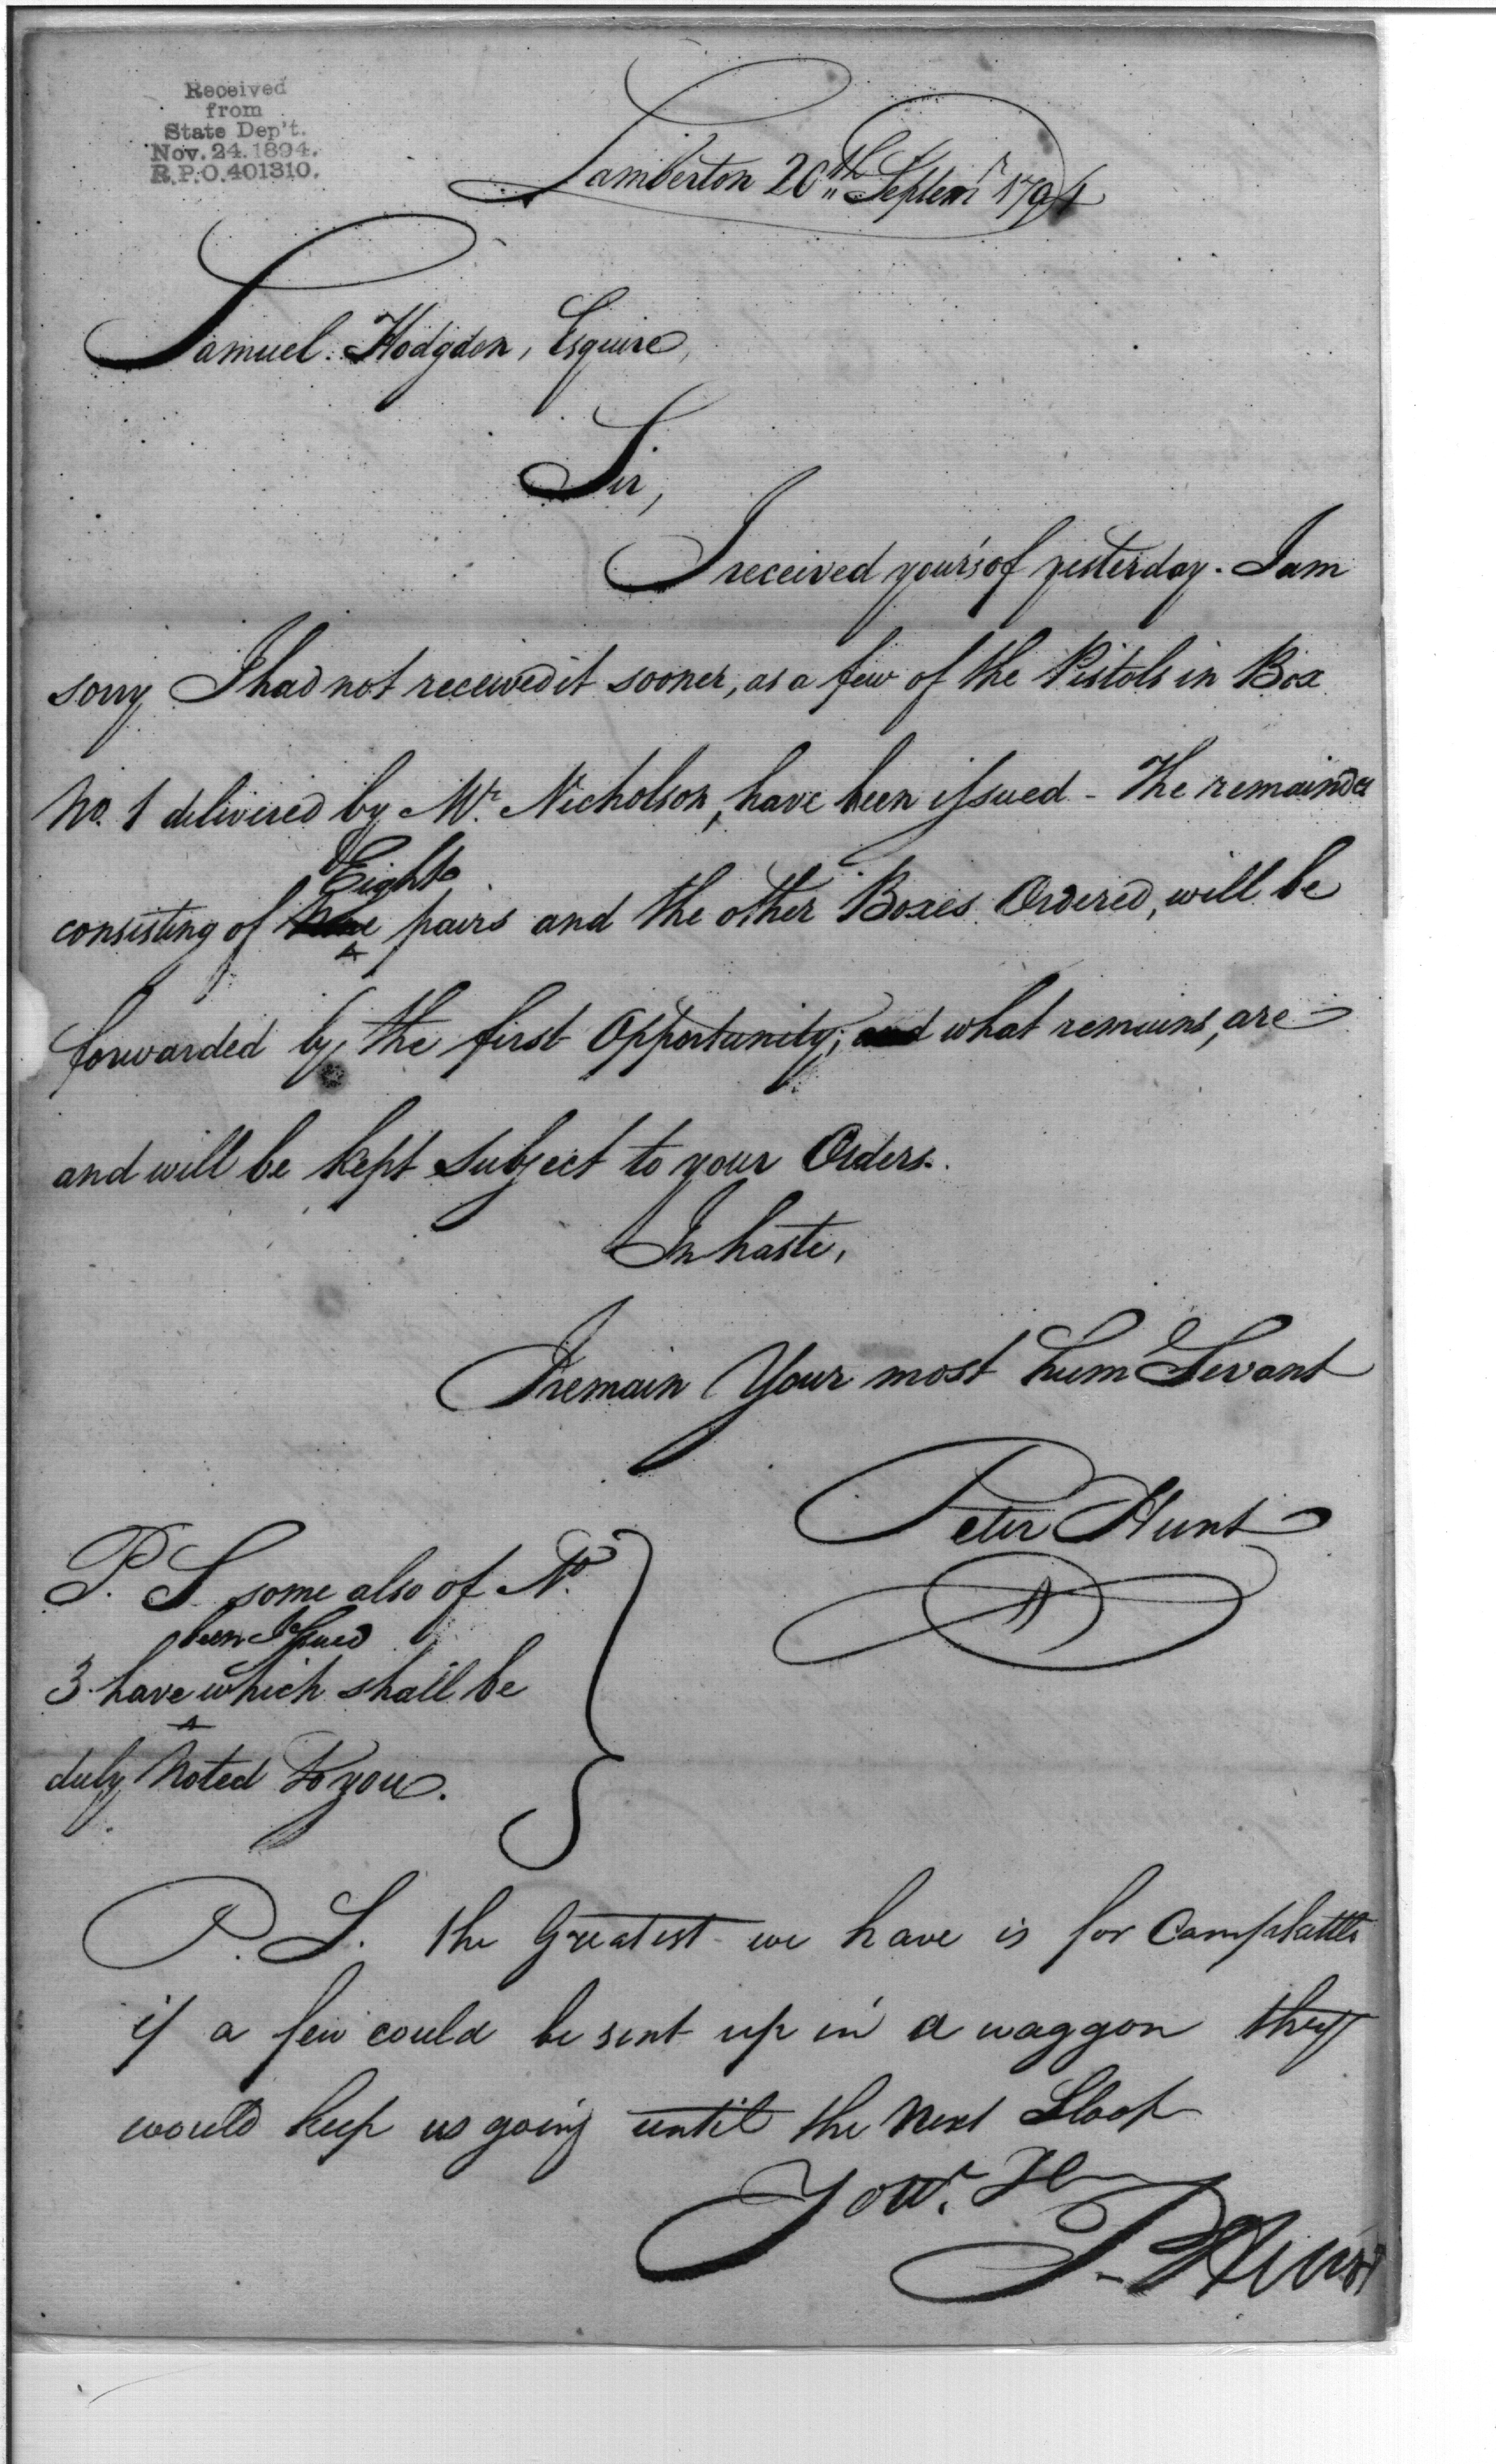 Received
from
State Dep't.
Nov. 24. 1894.
R.P.O. 401310.
Lamberton 20th Septemr 1794
Samuel Hodgdon, Esquire,
Sir,
I received your's of yesterday. I am
sorry I had not received it sooner, as a few of the Pistols in Box
No. 1 delivered by Mr. Nicholson, have been issued - The remainder
Eight
consisting of pairs and the other Boxes Ordered, will be
forwarded by the first Opportunity; and what remains, are
and will be kept subject to your Orders.
In haste,
I remain Your most hum Servant
Peter Hunt
P. S some also of No.
been Issued
3 have which shall be
duly Noted to you.
P. S. the Greatest we have is for Campkettles
if a few could be sent up in a waggon they
would keep us going until the next Sloop
Your. H
P. Hunt